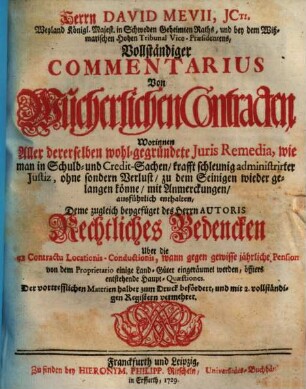 Herrn DAVID MEVII, JCTI,
Weyland Königl. Majest. in Schweden Geheimten Raths, und bey dem Wiß-
marischen Hohen Tribunal Vice-Præsidentens,
Vollständiger
COMMENTARIUS
Von
Wücherlichen Contracten,
Worinnen
Aller dererselben wohl-gegründete Juris Remedia, wie
man in Schuld- und Credit-Sachen, krafft schleunig administrirter
Justiz, ohne sondern Verlust, zu dem Seinigen wieder ge-
langen könne, mit Anmerckungen,
ausführlich enthalten,
Deme zugleich beygefüget des Herrn AUTORIS
Rechtliches Bedencken
Uber die
ex Contractu Locationis-Conductionis, wann gegen gewisse jährliche Pension
von dem Proprietario einige Land-Güter eingeräumet werden, öffters
entstehende Haupt-Quæstiones.
Der vortrefflichen Materien halber zum Druck befördert, und mit 2. vollständi-
gen Registern vermehret.
Franckfurth und Leipzig,
Zu finden bey HIERONYM. PHILIPP. Ritscheln, Universitäts-Buchhändl.
in Erffurth, 1729.